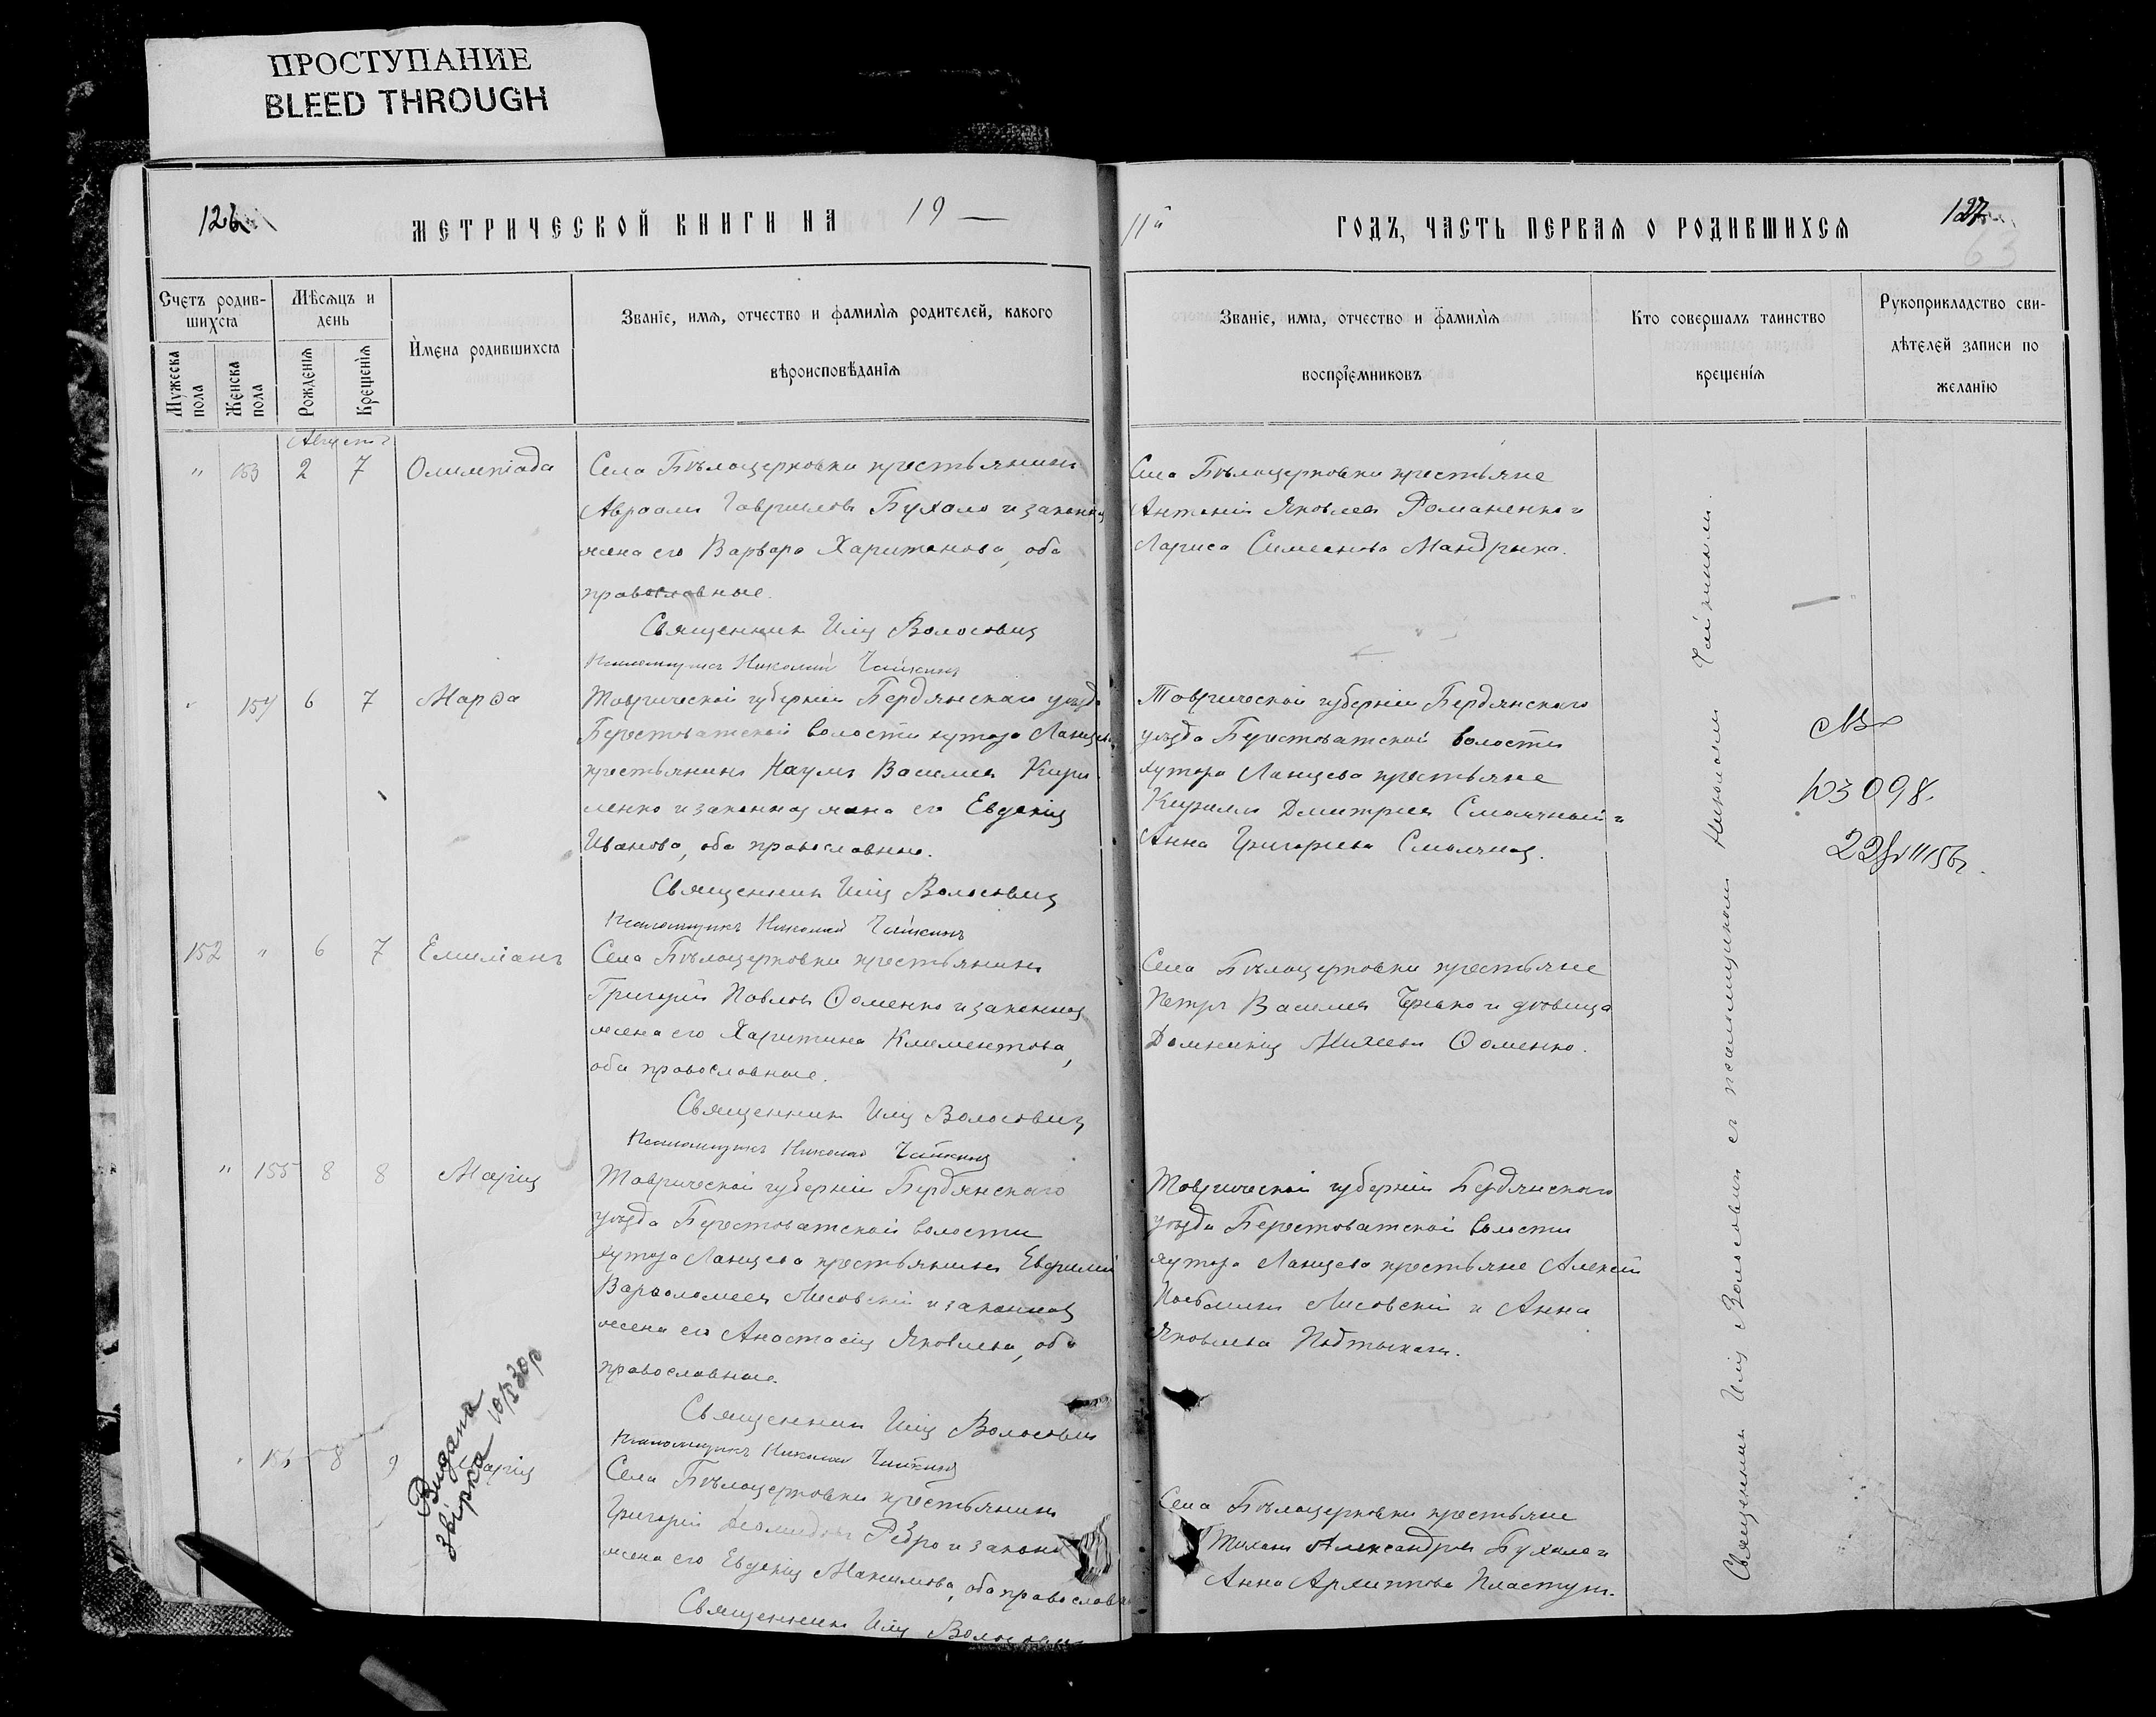 ПРОСТУПАНИЕ
BLEED THROUGH
126
МЕТРИЧЕСКОЙ КНИГИ НА 19 —
11й
ГОДЪ, ЧАСТЬ ПЕРВАЯ О РОДИВШИХСЯ
127
63
Счетъ родив-
шихся
Мѣсяцъ и
день
Имена родившихся
Званіе, имя, отчество и фамилія родителей, какого
вѣроисповѣданія
Мужеска
пола
Женска
пола
Рожденія
Крещенія
Званіе, имя, отчество и фамилія
воспріемниковъ
Кто совершалъ таинство
крещенія
Рукоприкладство сви-
дѣтелей записи по
желанію
Августъ
" 153 2 7 Олимпіада
Села Бѣлоцерковки крестьянинъ
Авраамъ Гавриловъ Бухало и законная
жена его Варвара Харитонова, оба
православные.
Священникъ Илія Волосовичъ
Псаломщикъ Николай Чайкинъ
Села Бѣлоцерковки крестьяне
Антоній Яковлевъ Романенко и
Лариса Симеонова Мандрыка.
" 154 6 7 Марѳа
Таврической губерніи Бердянскаго уѣзда
Берестоватской волости хутора Ланцева
крестьянинъ Наумъ Василіевъ Кири-
ленко и законная жена его Евдокія
Иванова, оба православные.
Священникъ Илія Волосовичъ
Псаломщикъ Николай Чайкинъ
Таврической губерніи Бердянскаго
уѣзда Берестоватской волости
хутора Ланцева крестьяне
Кириллъ Димитріевъ Смолчный и
Анна Григорьева Смолчная.
152 " 6 7 Емиліанъ
Села Бѣлоцерковки крестьянинъ
Григорій Павловъ Ѳоменко и законная
жена его Харитина Климентова,
оба православные.
Священникъ Илія Волосовичъ
Псаломщикъ Николай Чайкинъ
Села Бѣлоцерковки крестьяне
Петръ Василіевъ и дѣвица
Домникія Михеева Ѳоменко.
" 155 8 8 Марія
Таврической губерніи Бердянскаго
уѣзда Берестоватской волости
хутора Ланцева крестьянинъ Евфимій
Варѳоломеевъ Лисовскій и законная
жена его Анастасія Яковлева, оба
православные.
Священникъ Илія Волосовичъ
Псаломщикъ Николай Чайкинъ
Таврической губерніи Бердянскаго
уѣзда Берестоватской волости
хутора Ланцева крестьяне Алексій
Лисовскій и Анна
Яковлева
" 156 8 9 Марія
Видана
звірка 10/I 30р
Села Бѣлоцерковки крестьянинъ
Григорій Ребро и законн
жена его Евдокія Максимова, оба православн
Священникъ Илія Волосовичъ
Села Бѣлоцерковки крестьяне
Тихонъ Александровъ Бухало и
Анна Архиппова Пластунъ.
Священникъ Илія Волосовичъ съ псаломщикомъ Николаемъ Чайкинымъ.